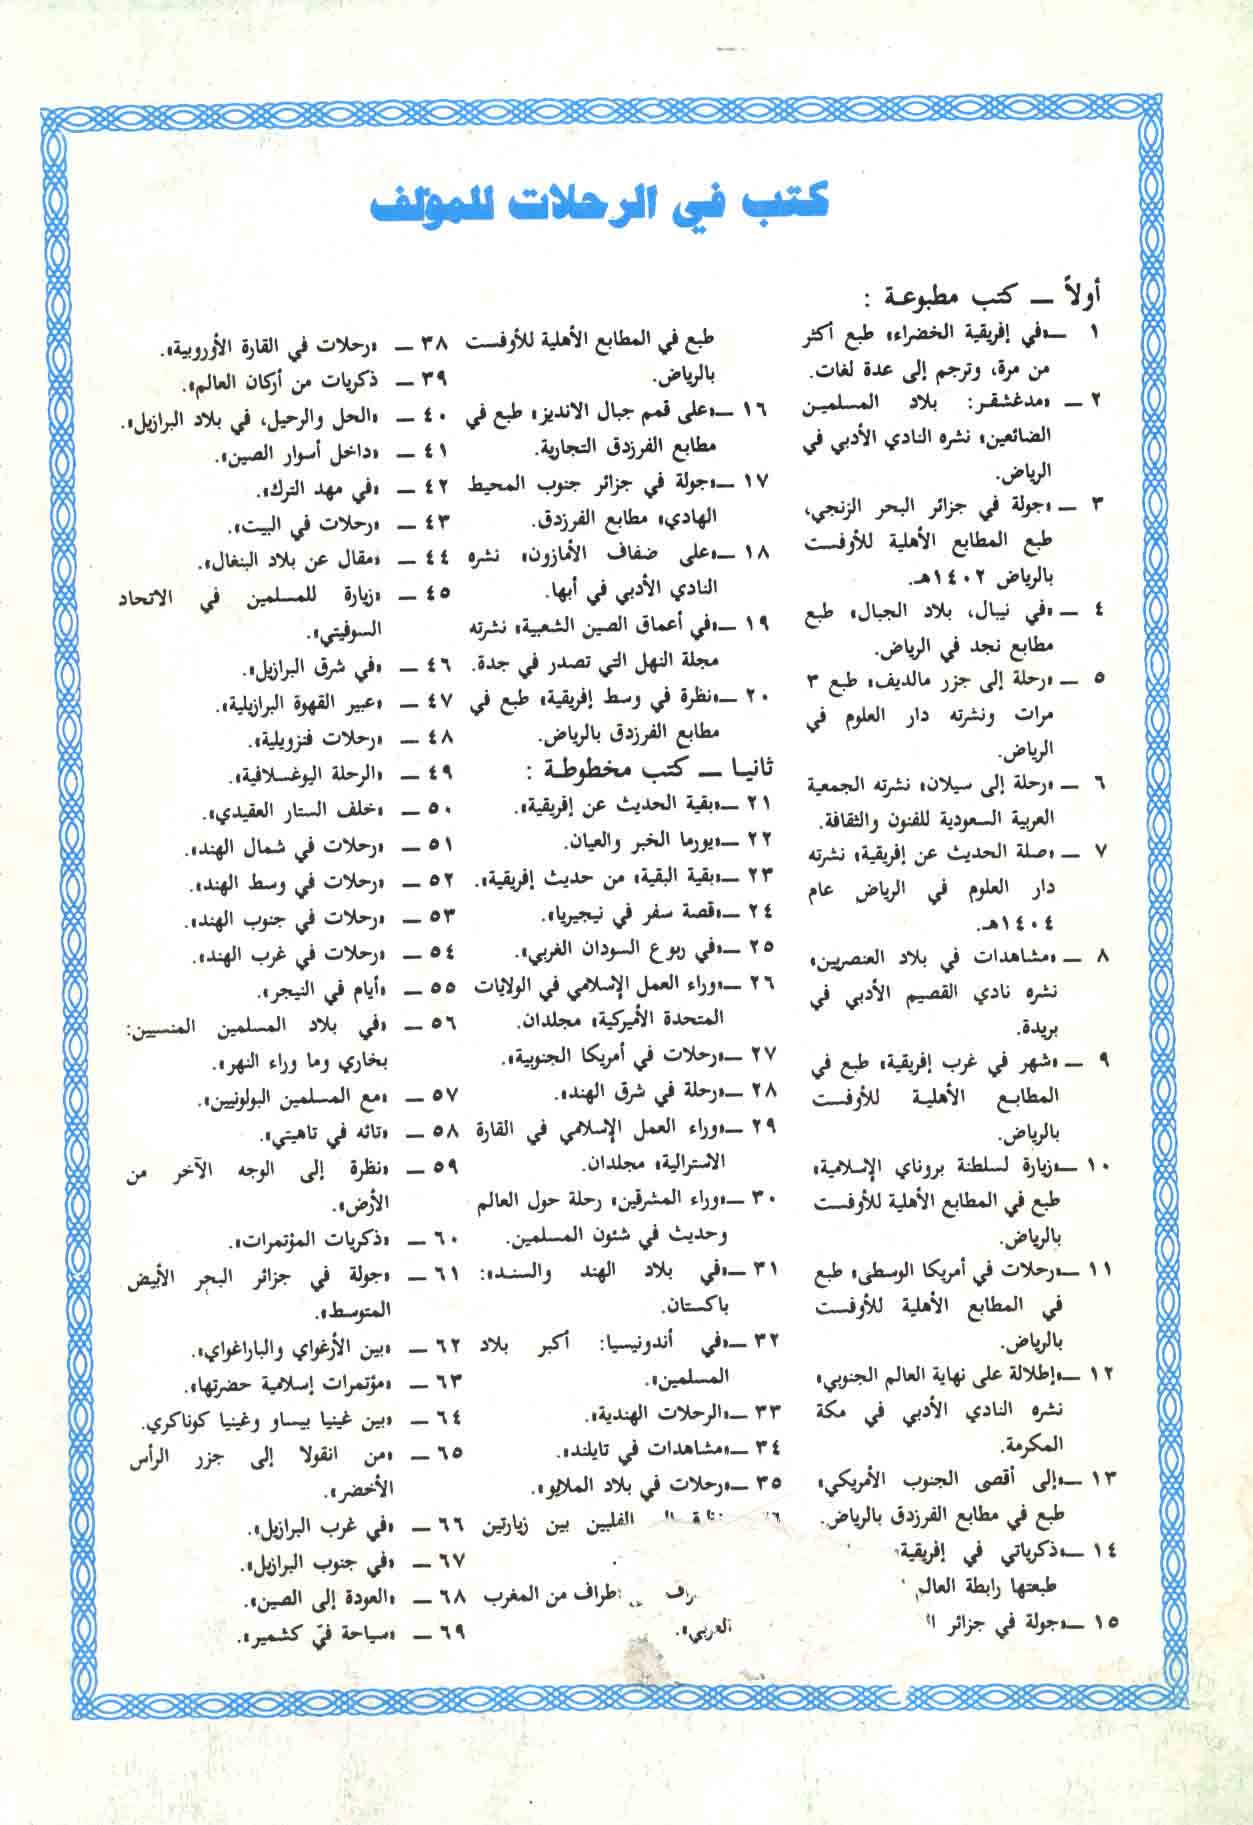 كتب في الرحلات للمؤلف
أولاً ــ كتب مطبوعة :
١ ــ «في إفريقية الخضراء» طبع أكثر
من مرة، وترجم إلى عدة لغات.
٢ ــ «مدغشقر: بلاد المسلمين
الضائعين» نشره النادي الأدبي في
الرياض.
٣ ــ «جولة في جزائر البحر الزنجي»،
طبع المطابع الأهلية للأوفست
بالرياض ١٤٠٢هـ.
٤ ــ «في نيبال، بلاد الجبال» طبع
مطابع نجد في الرياض.
٥ ــ «رحلة إلى جزر مالديف» طبع ٣
مرات ونشرته دار العلوم في
الرياض.
٦ ــ «رحلة إلى سيلان» نشرته الجمعية
العربية السعودية للفنون والثقافة.
٧ ــ «صلة الحديث عن إفريقية» نشرته
دار العلوم في الرياض عام
١٤٠٤هـ.
٨ ــ «مشاهدات في بلاد العنصريين»
نشره نادي القصيم الأدبي في
بريدة.
٩ ــ «شهر في غرب إفريقية» طبع في
المطابع الأهلية للأوفست
بالرياض.
١٠ ــ «زيارة لسلطنة بروناي الإسلامية»
طبع في المطابع الأهلية للأوفست
بالرياض.
١١ ــ «رحلات في أمريكا الوسطى» طبع
في المطابع الأهلية للأوفست
بالرياض.
١٢ ــ «إطلالة على نهاية العالم الجنوبي»
نشره النادي الأدبي في مكة
المكرمة.
١٣ ــ «إلى أقصى الجنوب الأمريكي»
طبع في مطابع الفرزدق بالرياض.
١٤ ــ «ذكرياتي في إفريقية»
طبعتها رابطة العالم
١٥ ــ «جولة في جزائر
طبع في المطابع الأهلية للأوفست
بالرياض.
١٦ ــ «على قمم جبال الانديز» طبع في
مطابع الفرزدق التجارية.
١٧ ــ «جولة في جزائر جنوب المحيط
الهادي» مطابع الفرزدق.
١٨ ــ «على ضفاف الأمازون» نشره
النادي الأدبي في أبها.
١٩ ــ «في أعماق الصين الشعبية» نشرته
مجلة النهل التي تصدر في جدة.
٢٠ ــ «نظرة في وسط إفريقية» طبع في
مطابع الفرزدق بالرياض.
ثانيا ــ كتب مخطوطة :
٢١ ــ «بقية الحديث عن إفريقية».
٢٢ ــ «بورما الخبر والعيان.
٢٣ ــ «بقية البقية» من حديث إفريقية».
٢٤ ــ «قصة سفر في نيجيريا».
٢٥ ــ «في ربوع السودان الغربي».
٢٦ ــ «وراء العمل الإسلامي في الولايات
المتحدة الأميركية» مجلدان.
٢٧ ــ «رحلات في أمريكا الجنوبية».
٢٨ ــ «رحلة في شرق الهند».
٢٩ ــ «وراء العمل الإسلامي في القارة
الاسترالية» مجلدان.
٣٠ ــ «وراء المشرقين» رحلة حول العالم
وحديث في شئون المسلمين.
٣١ ــ «في بلاد الهند والسند»:
باكستان.
٣٢ ــ «في أندونيسيا: أكبر بلاد
المسلمين».
٣٣ ــ «الرحلات الهندية».
٣٤ ــ «مشاهدات في تايلند».
٣٥ ــ «رحلات في بلاد الملايو».
الفلبين بين زيارتين
أطراف من المغرب
العربي».
٣٨ ــ «رحلات في القارة الأوروبية».
٣٩ ــ ذكريات من أركان العالم».
٤٠ ــ «الحل والرحيل، في بلاد البرازيل».
٤١ ــ «داخل أسوار الصين».
٤٢ ــ «في مهد الترك».
٤٣ ــ «رحلات في البيت».
٤٤ ــ «مقال عن بلاد البنغال».
٤٥ ــ «زيارة للمسلمين في الاتحاد
السوفيتي».
٤٦ ــ «في شرق البرازيل».
٤٧ ــ «عبير القهوة البرازيلية».
٤٨ ــ «رحلات فنزويلية».
٤٩ ــ «الرحلة اليوغسلافية».
٥٠ ــ «خلف الستار العقيدي».
٥١ ــ «رحلات في شمال الهند».
٥٢ ــ «رحلات في وسط الهند».
٥٣ ــ «رحلات في جنوب الهند».
٥٤ ــ «رحلات في غرب الهند».
٥٥ ــ «أيام في النيجر».
٥٦ ــ «في بلاد المسلمين المنسيين:
بخاري وما وراء النهر».
٥٧ ــ «مع المسلمين البولونيين».
٥٨ ــ «تائه في تاهيتي».
٥٩ ــ «نظرة إلى الوجه الآخر من
الأرض».
٦٠ ــ «ذكريات المؤتمرات».
٦١ ــ «جولة في جزائر البحر الأبيض
المتوسط».
٦٢ ــ «بين الأرغواي والباراغواي».
٦٣ ــ «مؤتمرات إسلامية حضرتها».
٦٤ ــ «بين غينيا بيساو وغينيا كوناكري.
٦٥ ــ «من انقولا إلى جزر الرأس
الأخضر».
٦٦ ــ «في غرب البرازيل».
٦٧ ــ «في جنوب البرازيل».
٦٨ ــ «العودة إلى الصين».
٦٩ ــ «سياحة في كشمير».